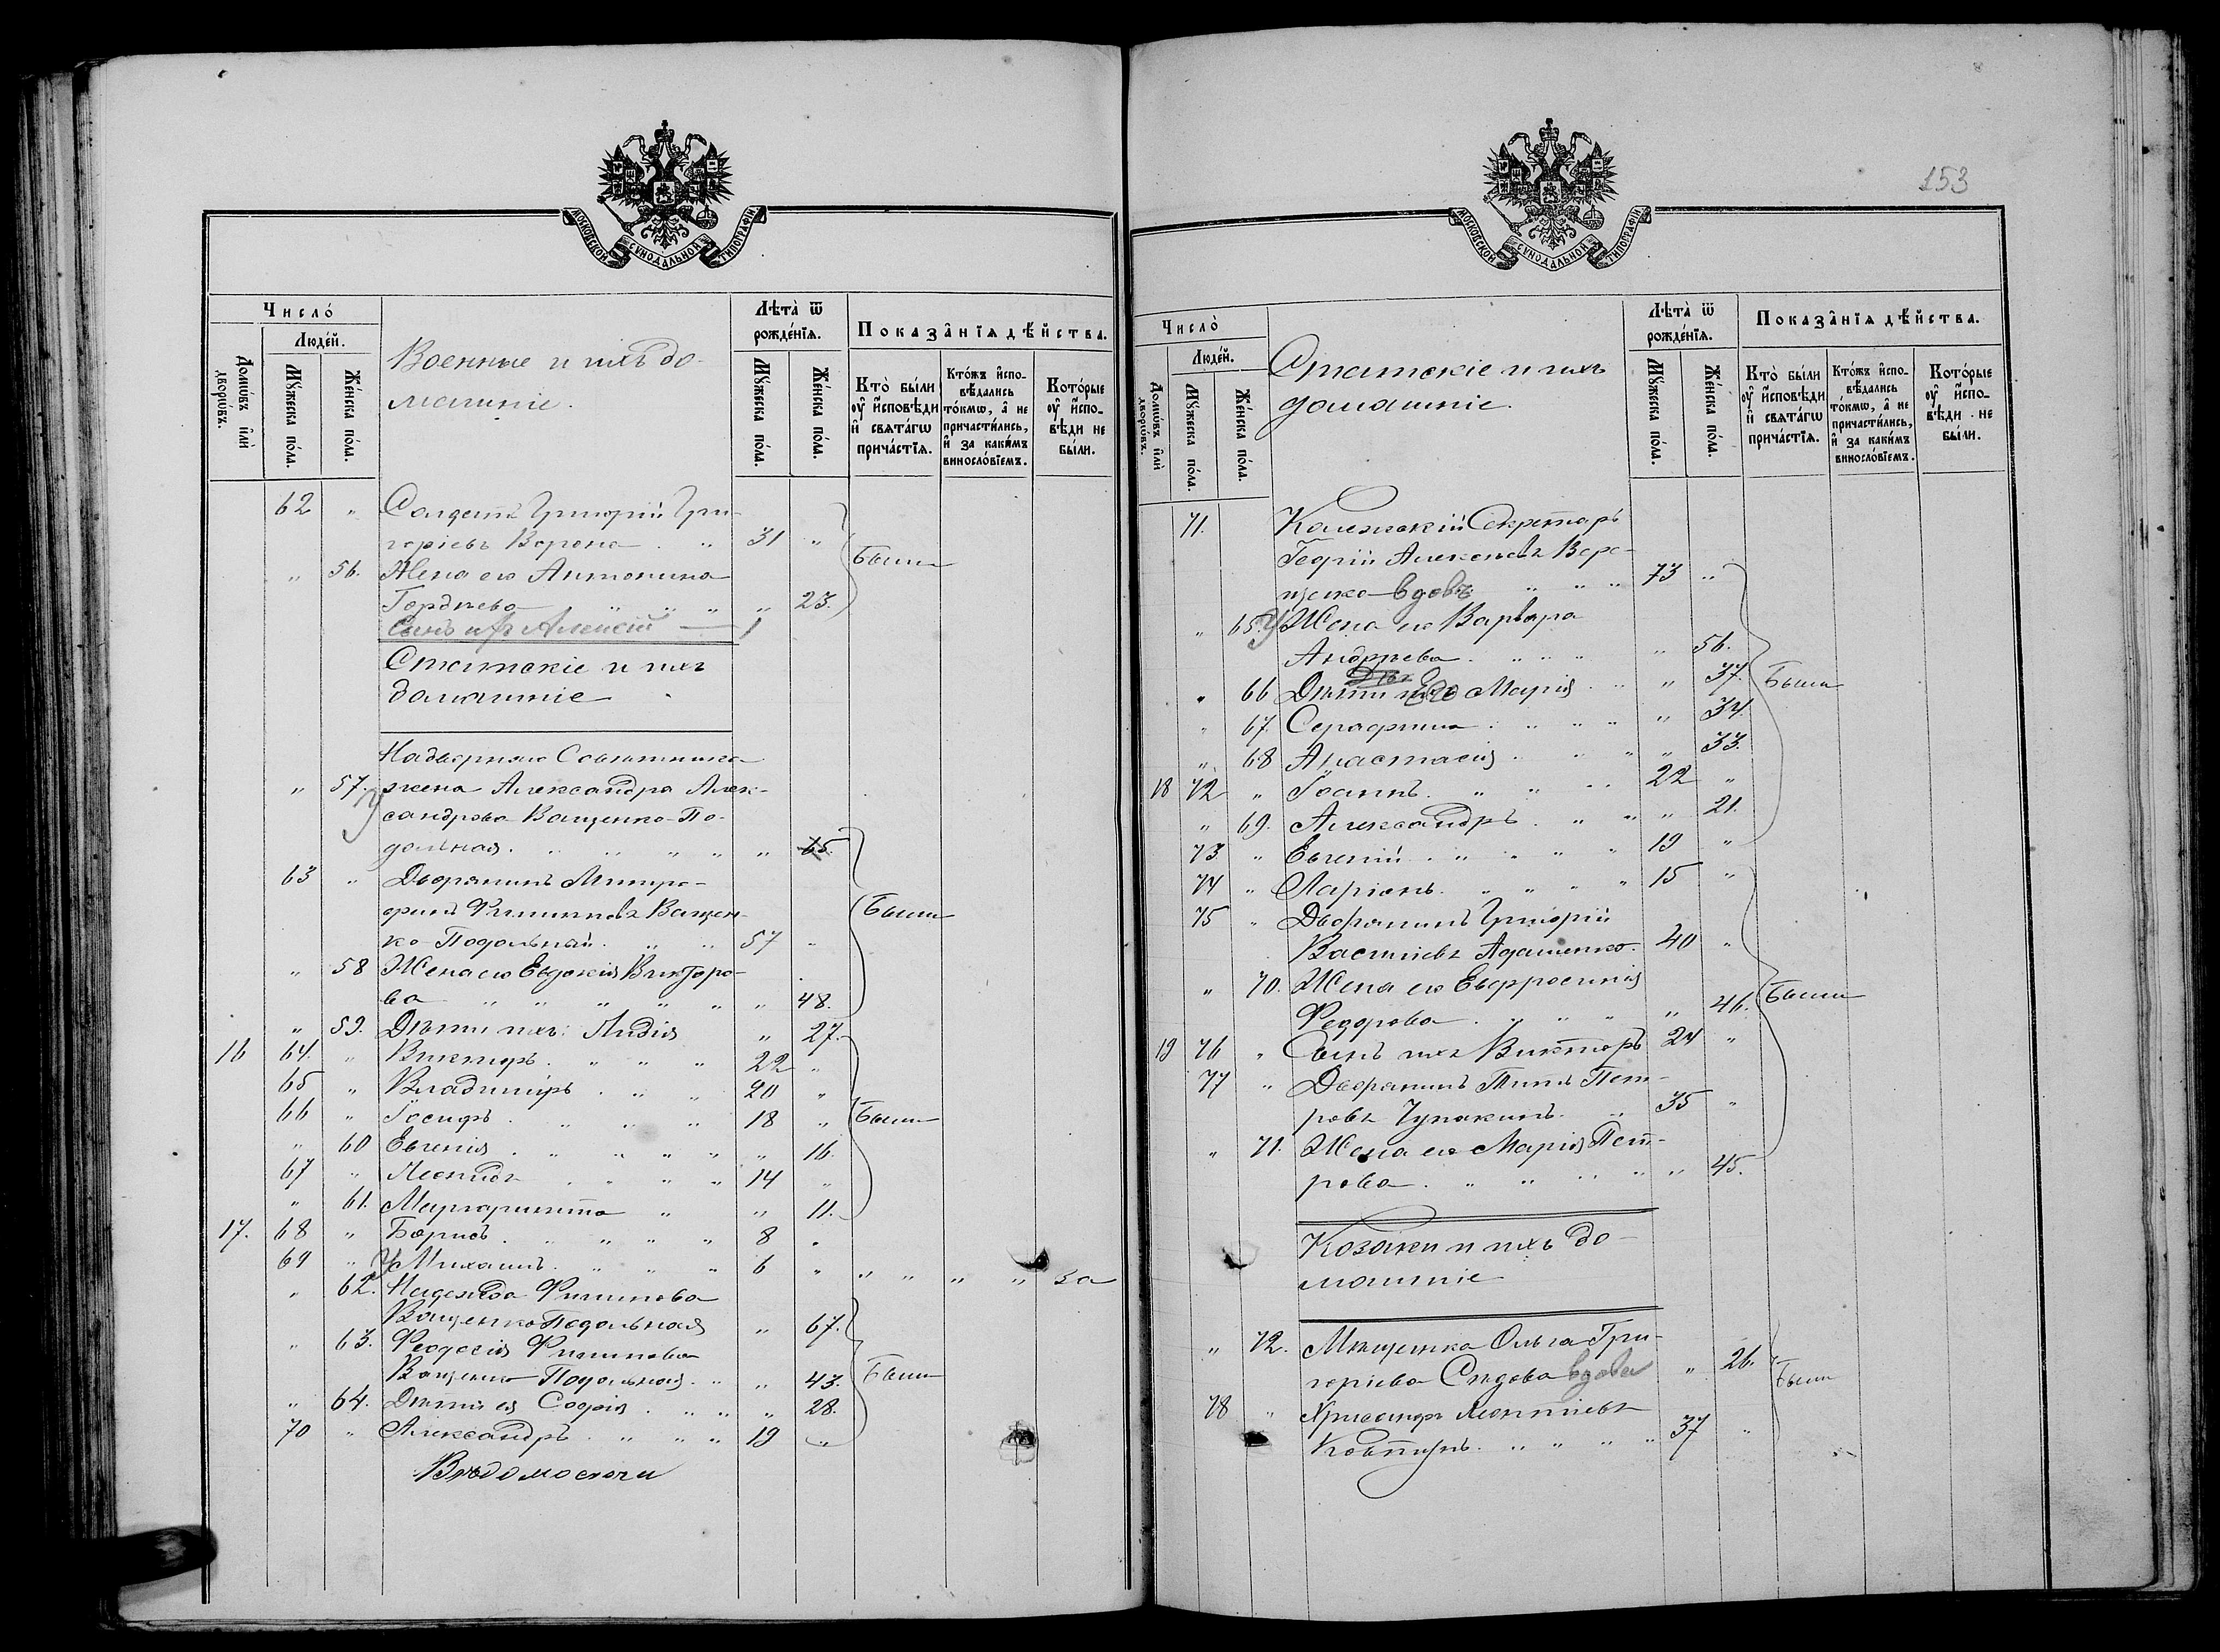 МОСКОВСКОЙ СѴНОДАЛЬНОЙ ТИПОГРАФІИ
Число̀
Люде́й.
Домѡ́въ и҆лѝ дворѡ́въ.
Мꙋ́жеска по́ла.
Же́нска по́ла.
Военные и ихъ до-
машніе.
Лѣта̀ ѿ рожде́нїѧ.
Мꙋ́жеска по́ла.
Же́нска по́ла.
Показа̂нїѧ дѣ́йства.
Кто̀ бы́ли ᲂу҆ и҆сповѣ́ди и҆ свѧта́гѡ прича́стїѧ.
Кто́жъ и҆сповѣ́дались то́кмѡ, а҆ не причасти́лись, и҆ за каки́мъ винословїемъ.
Кото́рые ᲂу҆ и҆сповѣ́ди не бы́ли.
62 " Солдатъ Григорій Гри-
горіевъ Ворона 31 "
" 56. Жена его Антонина
Гордѣева " 23. Были
Сынъ ихъ Алексій — 1
Статскіе и ихъ
домашніе
Надворнаго Совѣтника
" 57. жена Александра Алек-
сандрова Ващенко-По-
дольная " 65.
63 " Дворянинъ Митро-
фанъ Филиповъ Ващен-
ко-Подольный 57 " Были
" 58 Жена его Евдокія Викторо-
ва " 48.
" 59. Дѣти ихъ: Лидія " 27.
16 64. " Викторъ 22 "
65 " Владиміръ 20 "
66 " Іосифъ 18 " Были
" 60 Евгенія " 16.
67 " Леонидъ 14 "
" 61. Маргаритта " 11.
17. 68 " Борисъ 8 "
69 " У Михаилъ 6 " " " " " за
" 62. Надежда Филипова
Ващенко Подольная " 67.
" 63. Феодосія Филипова
Ващенко-Подольная " 43. Были
" 64. Дѣти ея Софія " 28.
70 " Александръ 19 "
Вѣдомости
153
МОСКОВСКОЙ СѴНОДАЛЬНОЙ ТИПОГРАФІИ
Число̀
Люде́й.
Домѡ́въ и҆лѝ дворѡ́въ.
Мꙋ́жеска по́ла.
Же́нска по́ла.
Статскіе и ихъ
домашніе.
Лѣта̀ ѿ рожде́нїѧ.
Мꙋ́жеска по́ла.
Же́нска по́ла.
Показа̂нїѧ дѣ́йства.
Кто̀ бы́ли ᲂу҆ и҆сповѣ́ди и҆ свѧта́гѡ прича́стїѧ.
Кто́жъ и҆сповѣ́дались то́кмѡ, а҆ не причасти́лись, и҆ за каки́мъ винословїемъ.
Кото́рые ᲂу҆ и҆сповѣ́ди не бы́ли.
71. Колежскій Секретарь
Георгій Алексіевъ Воро-
щенко вдовъ 73 "
" 65. У Жена его Варвара
Андреева " 56.
" 66 Дѣти его Марія " 37. Были
" 67. Серафима " 34.
" 68 Анастасія " 33.
18 72 " Іоаннъ 22 "
" 69. Александръ " 21.
73 " Евгеній 19 "
74 " Ларіонъ 15 "
75 " Дворянинъ Григорій
Василіевъ Адаменко 40 "
" 70. Жена его Евфросинія
Федорова " 46. Были
19 76 " Сынъ ихъ Викторъ 24 "
77 " Дворянинъ Пет-
ровъ Чупакинъ 35 "
" 71. Жена его Марія Пет-
рова " 45.
Козаки и ихъ до-
машніе
" 72. Мѣщенка Ольга Гри-
горіева Сѣдова вдова " 26.
78 " Христофоръ Леонтіевъ Были
Ковтунъ 37 "